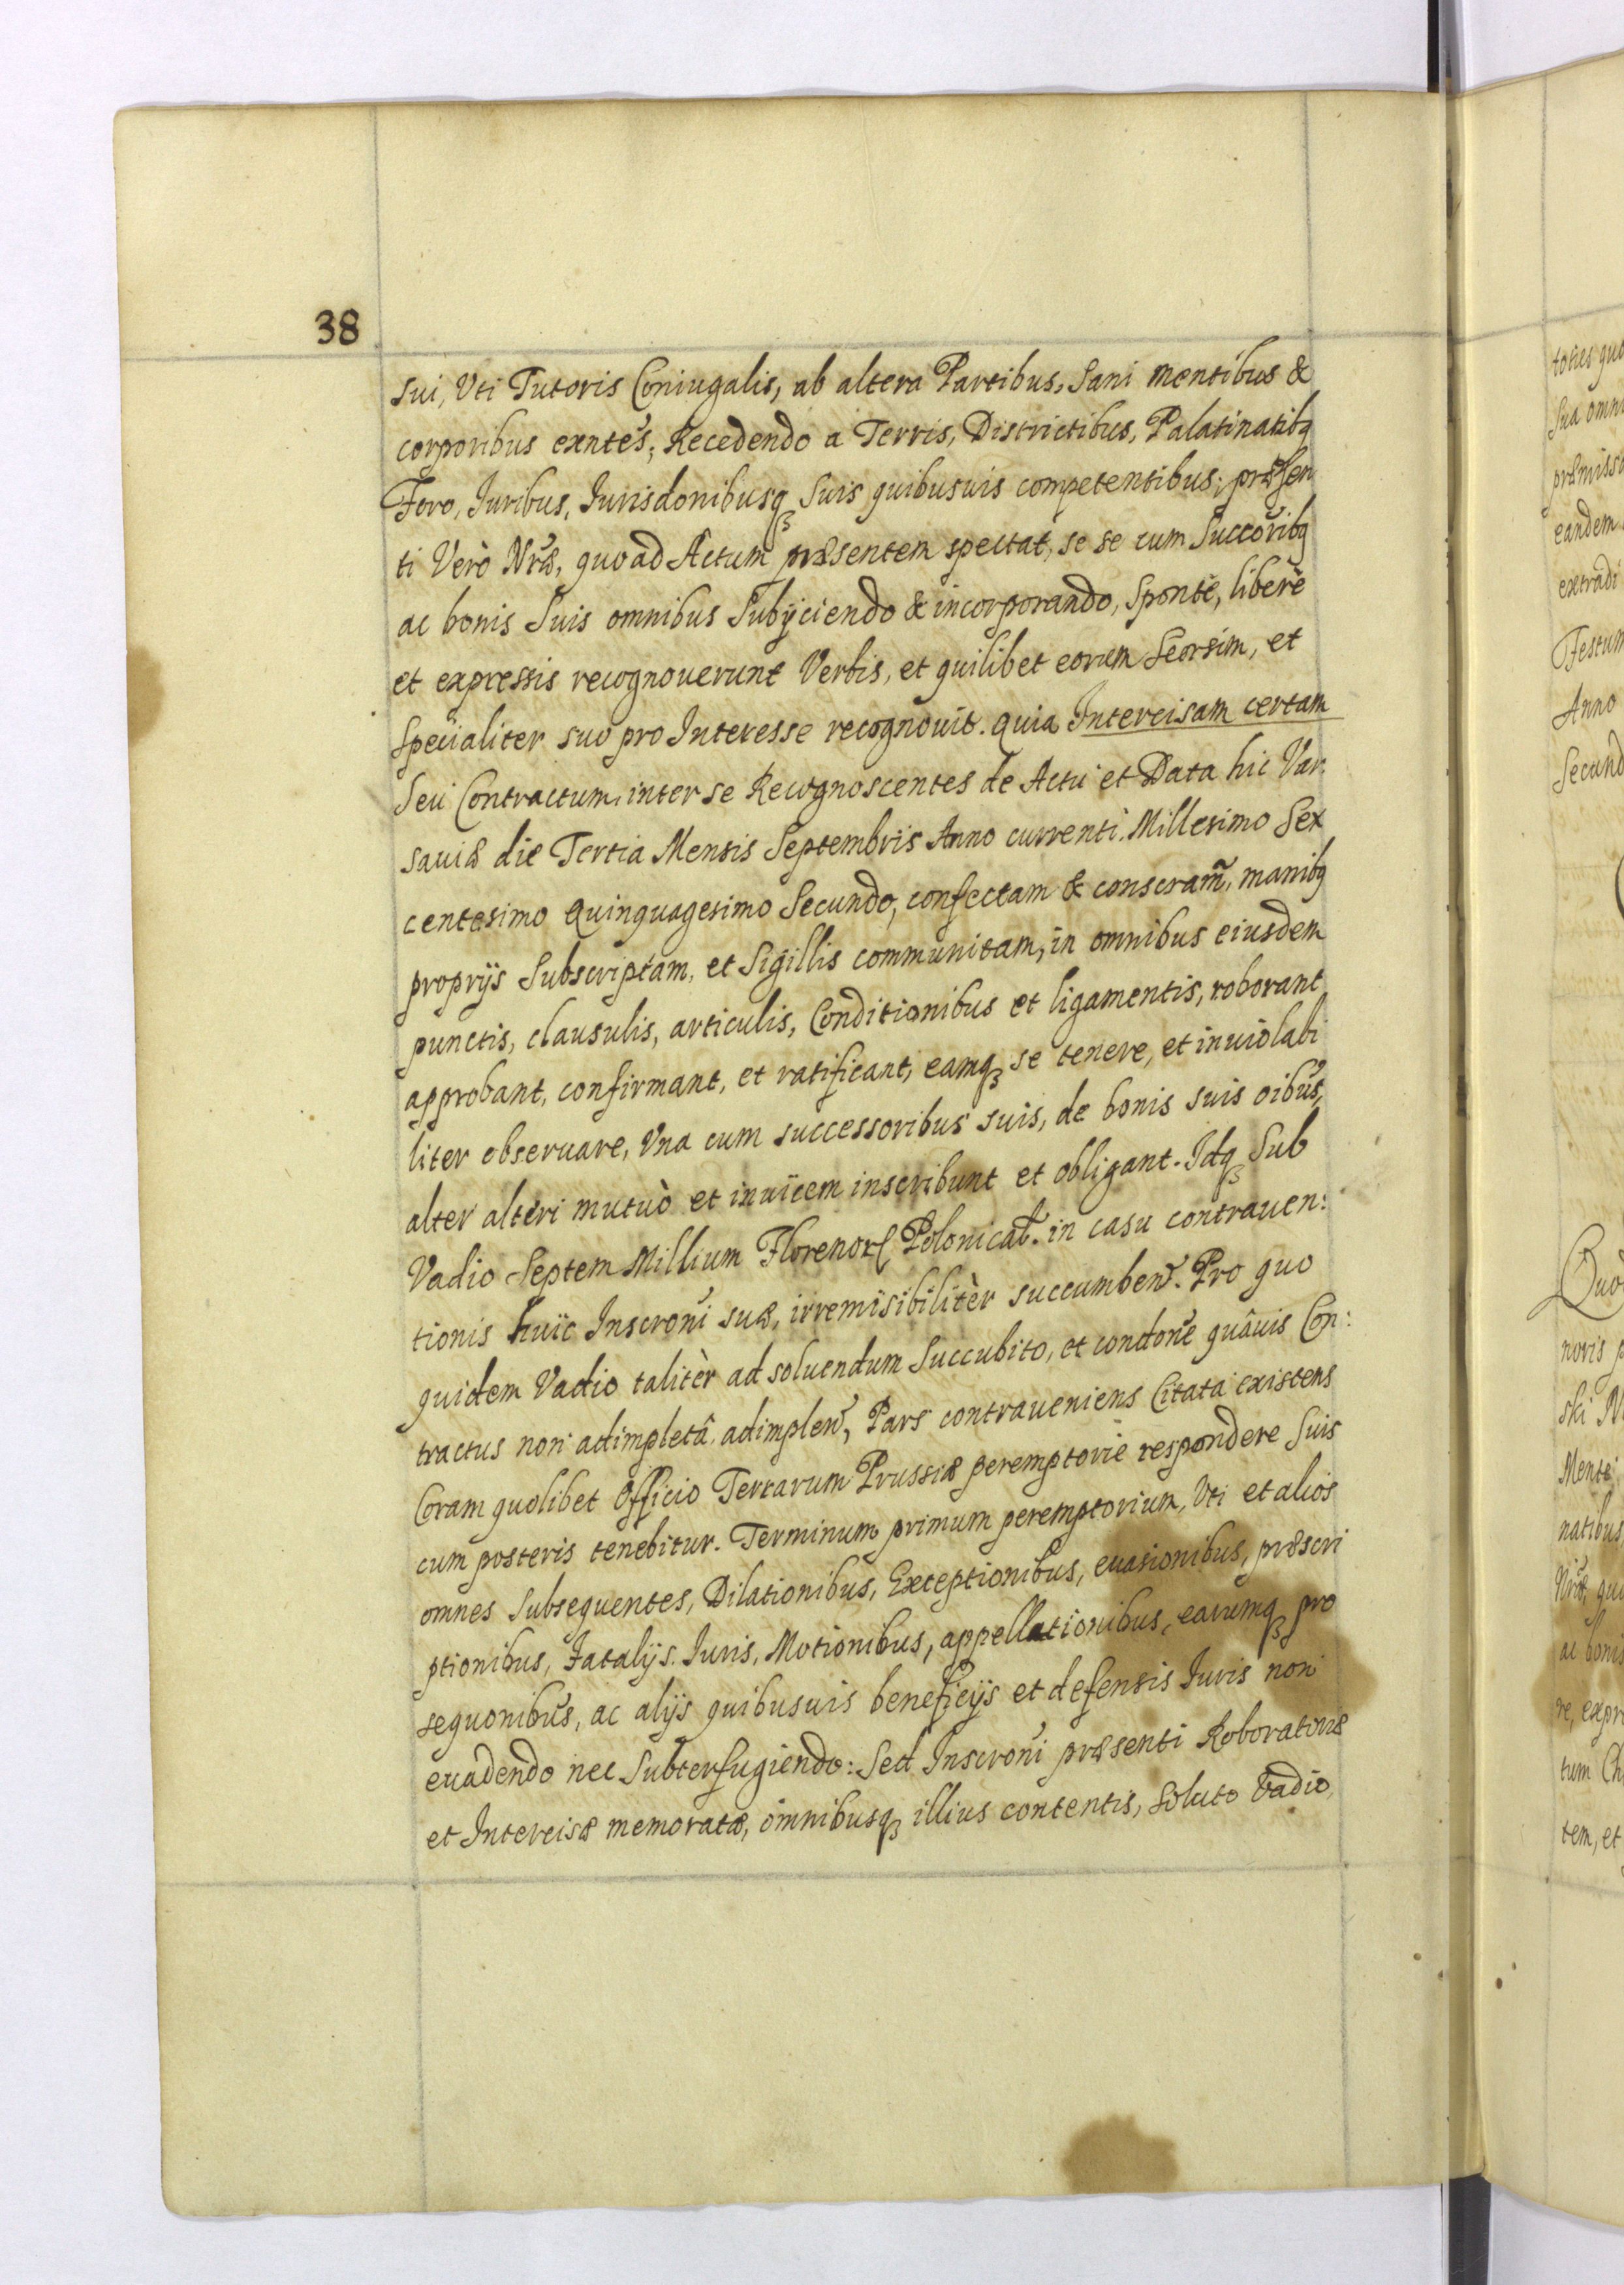 38
sui, Vti Tutoris Coniugalis, ab altera Partibus, Sani mentibus &
corporibus exntes, Recedendo a Terris, Districtibus, Palatinatibq
Foro, Iuribus, Iurisdonibusq Suis quibusuis competentibus; præsen
ti Verò Nræ, quo ad Actum præsentem spectat, se se cum Succoribq
ac bonis Suis omnibus Subijciendo & incorporando, Sponte, liberè
et expressis recognouerunt Verbis, et quilibet eorum Seorsim, et
Specialiter suo pro Interesse recognouit. Quia Intercisam certam
Seu Contractum, inter se Recognoscentes de Actu et Data hic Var:
sauiæ die Tertia Mensis Septembris Anno currenti Millesimo Sex
centesimo Quinquagesimo Secundo, confectam & conscram, manibq
proprijs Subscriptam, et Sigillis communitam, in omnibus eiusdem
punctis, clausulis, articulis, Conditionibus et ligamentis, roborant,
approbant, confirmant, et ratificant, eamq se tenere, et inuiolabi
liter obseruare, Vna cum successoribus suis, de bonis suis oibus,
alter alteri mutuò et inuicem inscribunt et obligant. Idq Sub
Vadio Septem Millium Florenor Polonical. in casu contrauen:
tionis huic Inscroni suæ, irremisibilitèr succumben. Pro quo
quidem Vadio talitèr ad soluendum Succubito, et condone quâuis Con:
tractus non adimpletâ, adimplen, Pars contraueniens Citata existens
Coram quolibet Officio Terrarum Prussiæ peremptorie respondere Suis
cum posteris tenebitur. Terminum primum peremptorium, Vti et alios
omnes Subsequentes, Dilationibus, Exceptionibus, euasionibus, præscri
ptionibus, Fatalijs Iuris, Motionibus, appellationibus, earumq pro
sequonibus, ac alijs quibusuis beneficijs et defensis Iuris non
euadendo nec Subterfugiendo: Sed Inscroni præsenti Roboratoriæ
et Intercisæ memoratæ, omnibusq illius contentis, Soluto Vadio,